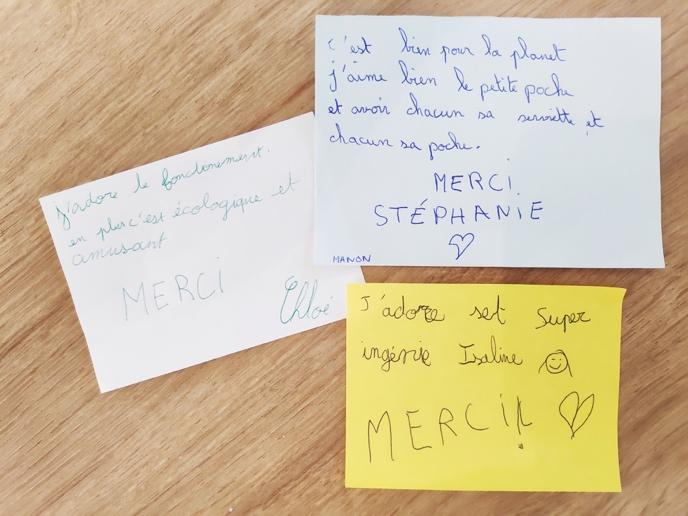 c'est bien pour la planet
j'aime bien le petite poche
et avoir chacun sa serviette et
chacun sa poche.
MERCI
STÉPHANIE
MANON
J'adore le fonctionement.
en plus c'est écologique et
amusant
MERCI
Chloé
J'adore set super
ingénie Isaline
MERCI!